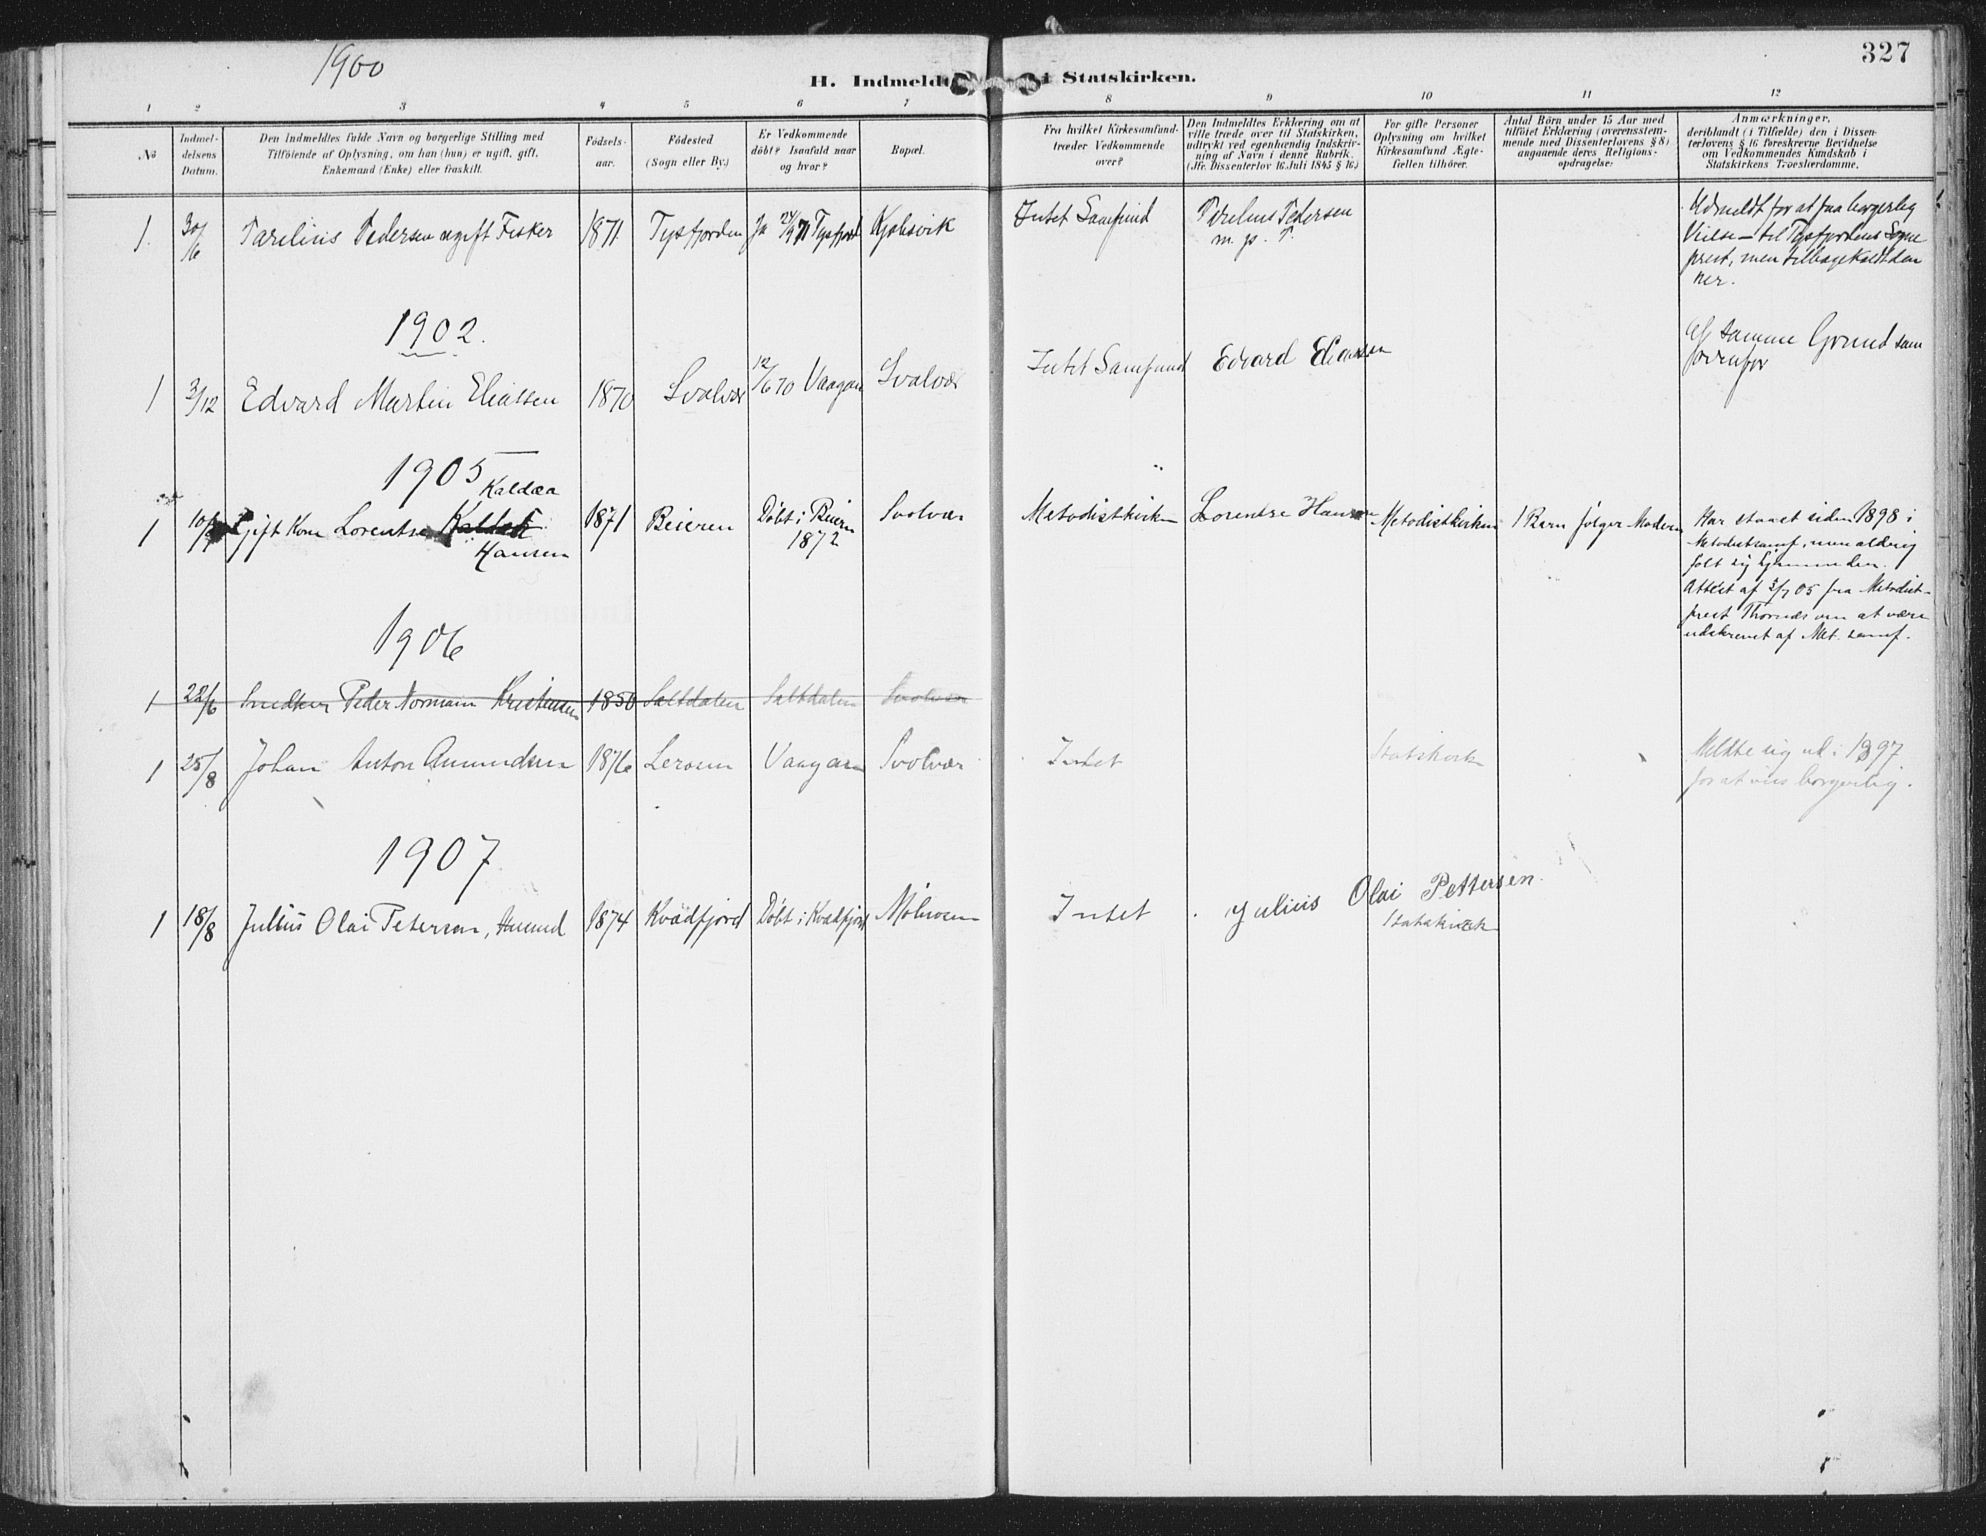 1900
327
H. Indmeldte i Statskirken.
1 2 3 4 5 6 7 8 9 10 11 12
No
Indmel-
delsens
Datum.
Den Indmeldtes fulde Navn og borgerlige Stilling med
Tilföiende af Oplysning, om han (hun) er ugift, gift,
Enkemand (Enke) eller fraskilt.
Födsels-
aar.
Födested
(Sogn eller By.)
Er Vedkommende
döbt? Isaafald naar
og hvor?
Bopæl.
Fra hvilket Kirkesamfund
træder Vedkommende
over?
Den Indmeldtes Erklæring om at
ville træde over til Statskirken,
udtrykt ved egenhændig Indskriv-
ning af Navn i denne Rubrik.
(Jfr. Dissenterlov 16 Juli 1845 § 16.)
For gifte Personer
Oplysning om hvilket
Kirkesamfund Ægte-
fællen tilhörer.
Antal Börn under 15 Aar med
tilföiet Erklæring (overensstem-
mende med Dissenterlovens § 8)
angaaende deres Religions-
opdragelse.
Anmærkninger,
deriblandt (i Tilfælde) den i Dissen-
terlovens § 16 foreskrevne Bevidnelse
om Vedkommendes Kundskab i
Statskirkens Troeslærdomme.
1. 30/6 Parelius Pedersen ugift Fisker 1871 Tysfjorden Ja 24/9 71 Tysfjord Kjøbsvik Intet Samfund Parelius Pedersen
m. p. P.
Udmeldt for at faa borgerlig
Vielse – til Tysfjordens Sogne
prest, men tilbagekaldt den
her.
1902.
1 3/12 Edvard Martin Eliassen 1870 Svolvær 12/6 70 Vaagan Svolvær Intet Samfund Edvard Eliassen
Af samme Grund som
ovenfor
1905
Kaldaa
1 10/7 Gift Kone Lorentse
Hansen
1871 Beieren Døbt i Beiern
1872
Svolvær Metodistkirken Lorentse Hansen Metodistkirken 1 Barn følger Moderen
Har staaet siden 1898 i
Metodistsamf, men aldrig
følt sig hjemme der.
Attest af 3/7 05 fra Metodist-
prest om at være
udskrevet af Met. samf.
1906
1 22/6 Snedker Peder Normann Kristensen 1850 Saltdalen Saltdalen Svolvær
1 25/8 Johan Anton Amundsen 1876 Lerosen Vaagan Svolvær Intet Statskirken
Meldte sig ud i 1897
for at vies borgerlig.
1907
1 18/8 Julius Olai Petersen, 1874 Kvædfjord Døbt i Kvædfjord Molnosen Intet Julius Olai Pettersen.
Statskirken